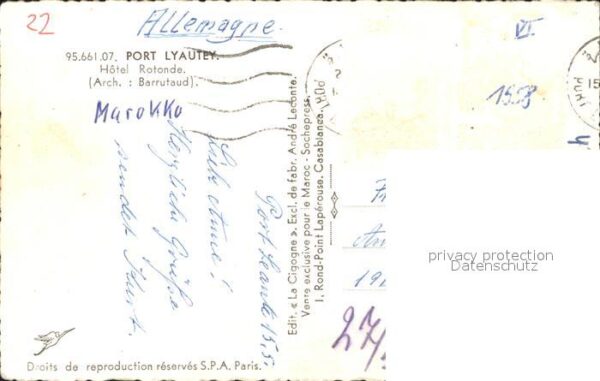 22
Allemagne.
VI
95.661.07. PORT LYAUTEY.
Hôtel Rotonde.
(Arch. : Barrutaud).
Marokko
1558
Port Lyautey 15.5.
Liebe Anna !
Herzliche Grüße
sendet Kurt.
Edit. « La Cigogne ». Excl. de fabr. André Leconte.
Vente exclusive pour le Maroc - Sochepress
1, Rond-Point Lapérouse, Casablanca.
privacy protection
Datenschutz
27/
Droits de reproduction réservés S.P.A. Paris.